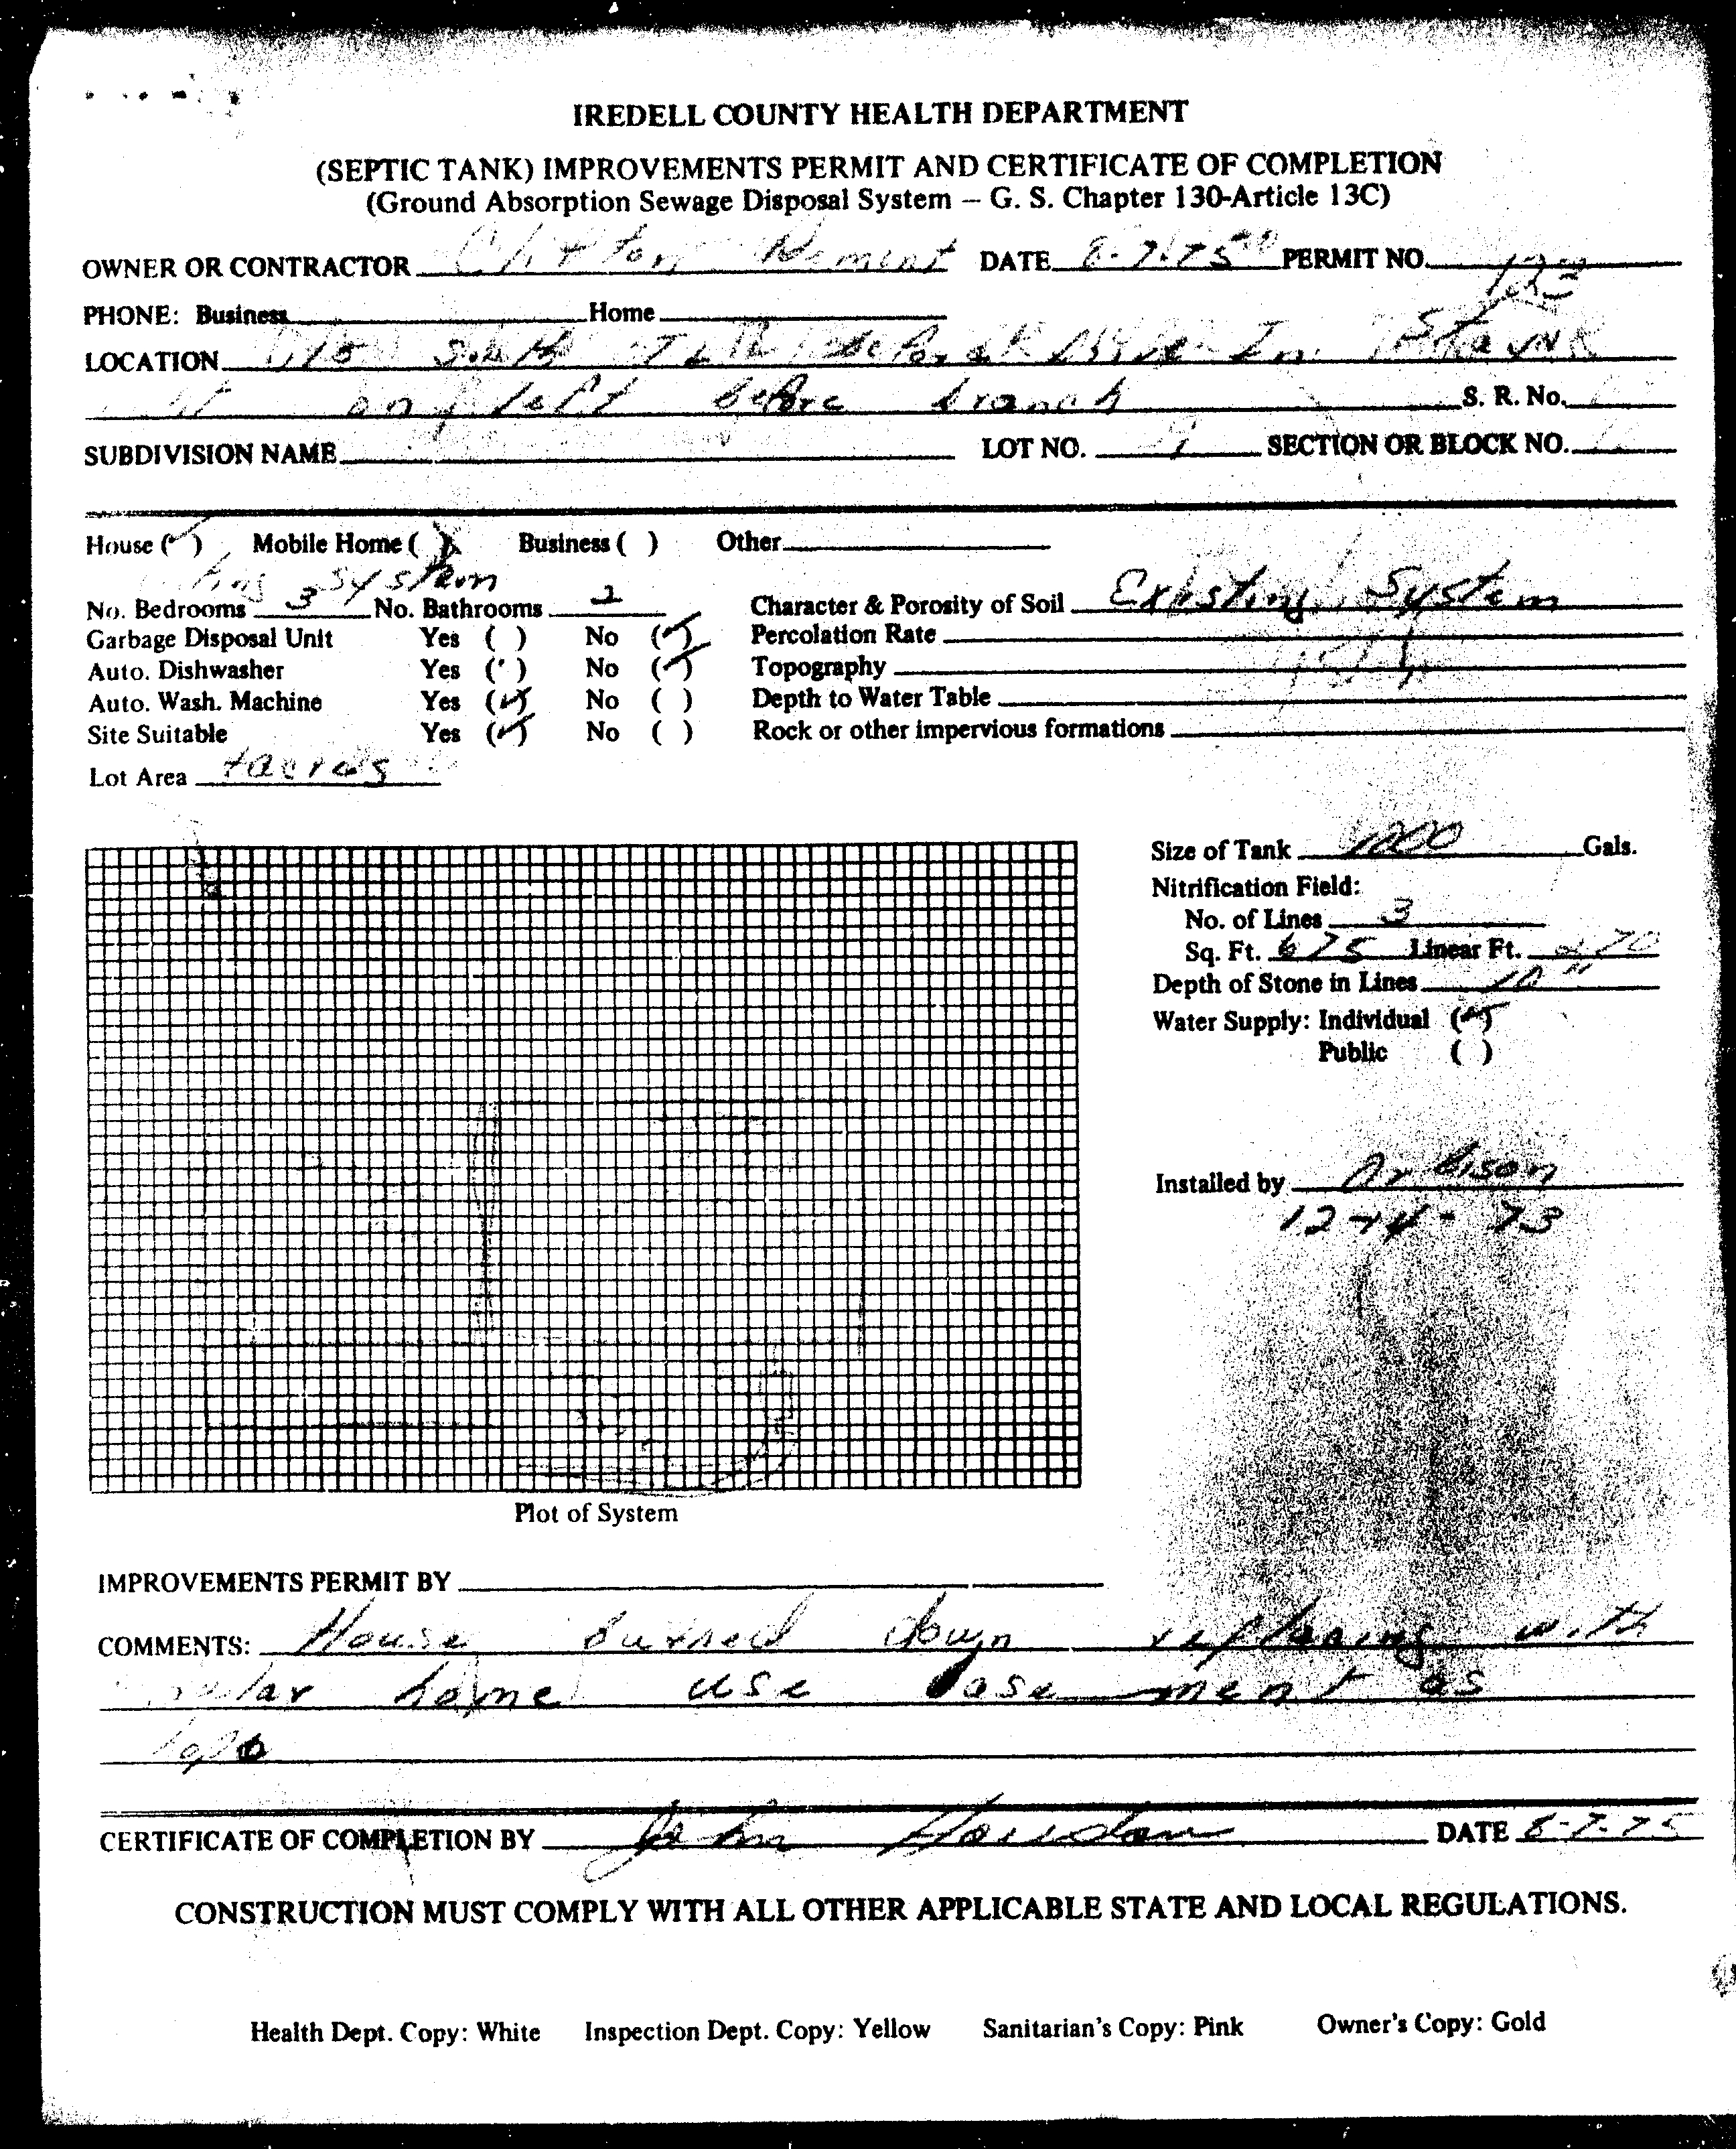 IREDELL COUNTY HEALTH DEPARTMENT
(SEPTIC TANK) IMPROVEMENTS PERMIT AND CERTIFICATE OF COMPLETION
(Ground Absorption Sewage Disposal System – G. S. Chapter 130-Article 13C)
OWNER OR CONTRACTOR Clifton DATE 8-7-75 PERMIT NO. 123
PHONE: Business Home
LOCATION 115 South
on left before branch S. R. No.
SUBDIVISION NAME LOT NO. SECTION OR BLOCK NO.
House (✓) Mobile Home ( ) Business ( ) Other
System
No. Bedrooms 3 No. Bathrooms 2 Character & Porosity of Soil Existing System
Garbage Disposal Unit Yes ( ) No (✓) Percolation Rate
Auto. Dishwasher Yes ( ) No (✓) Topography
Auto. Wash. Machine Yes (✓) No ( ) Depth to Water Table
Site Suitable Yes (✓) No ( ) Rock or other impervious formations
Lot Area
Size of Tank 1000 Gals.
Nitrification Field:
No. of Lines 3
Sq. Ft. 675 Linear Ft. 270
Depth of Stone in Lines 10"
Water Supply: Individual (✓)
Public ( )
Installed by Arbison
12-14-73
Plot of System
IMPROVEMENTS PERMIT BY
COMMENTS: House burned down replacing with
home use basement as
CERTIFICATE OF COMPLETION BY John DATE 8-7-75
CONSTRUCTION MUST COMPLY WITH ALL OTHER APPLICABLE STATE AND LOCAL REGULATIONS.
Health Dept. Copy: White Inspection Dept. Copy: Yellow Sanitarian's Copy: Pink Owner's Copy: Gold